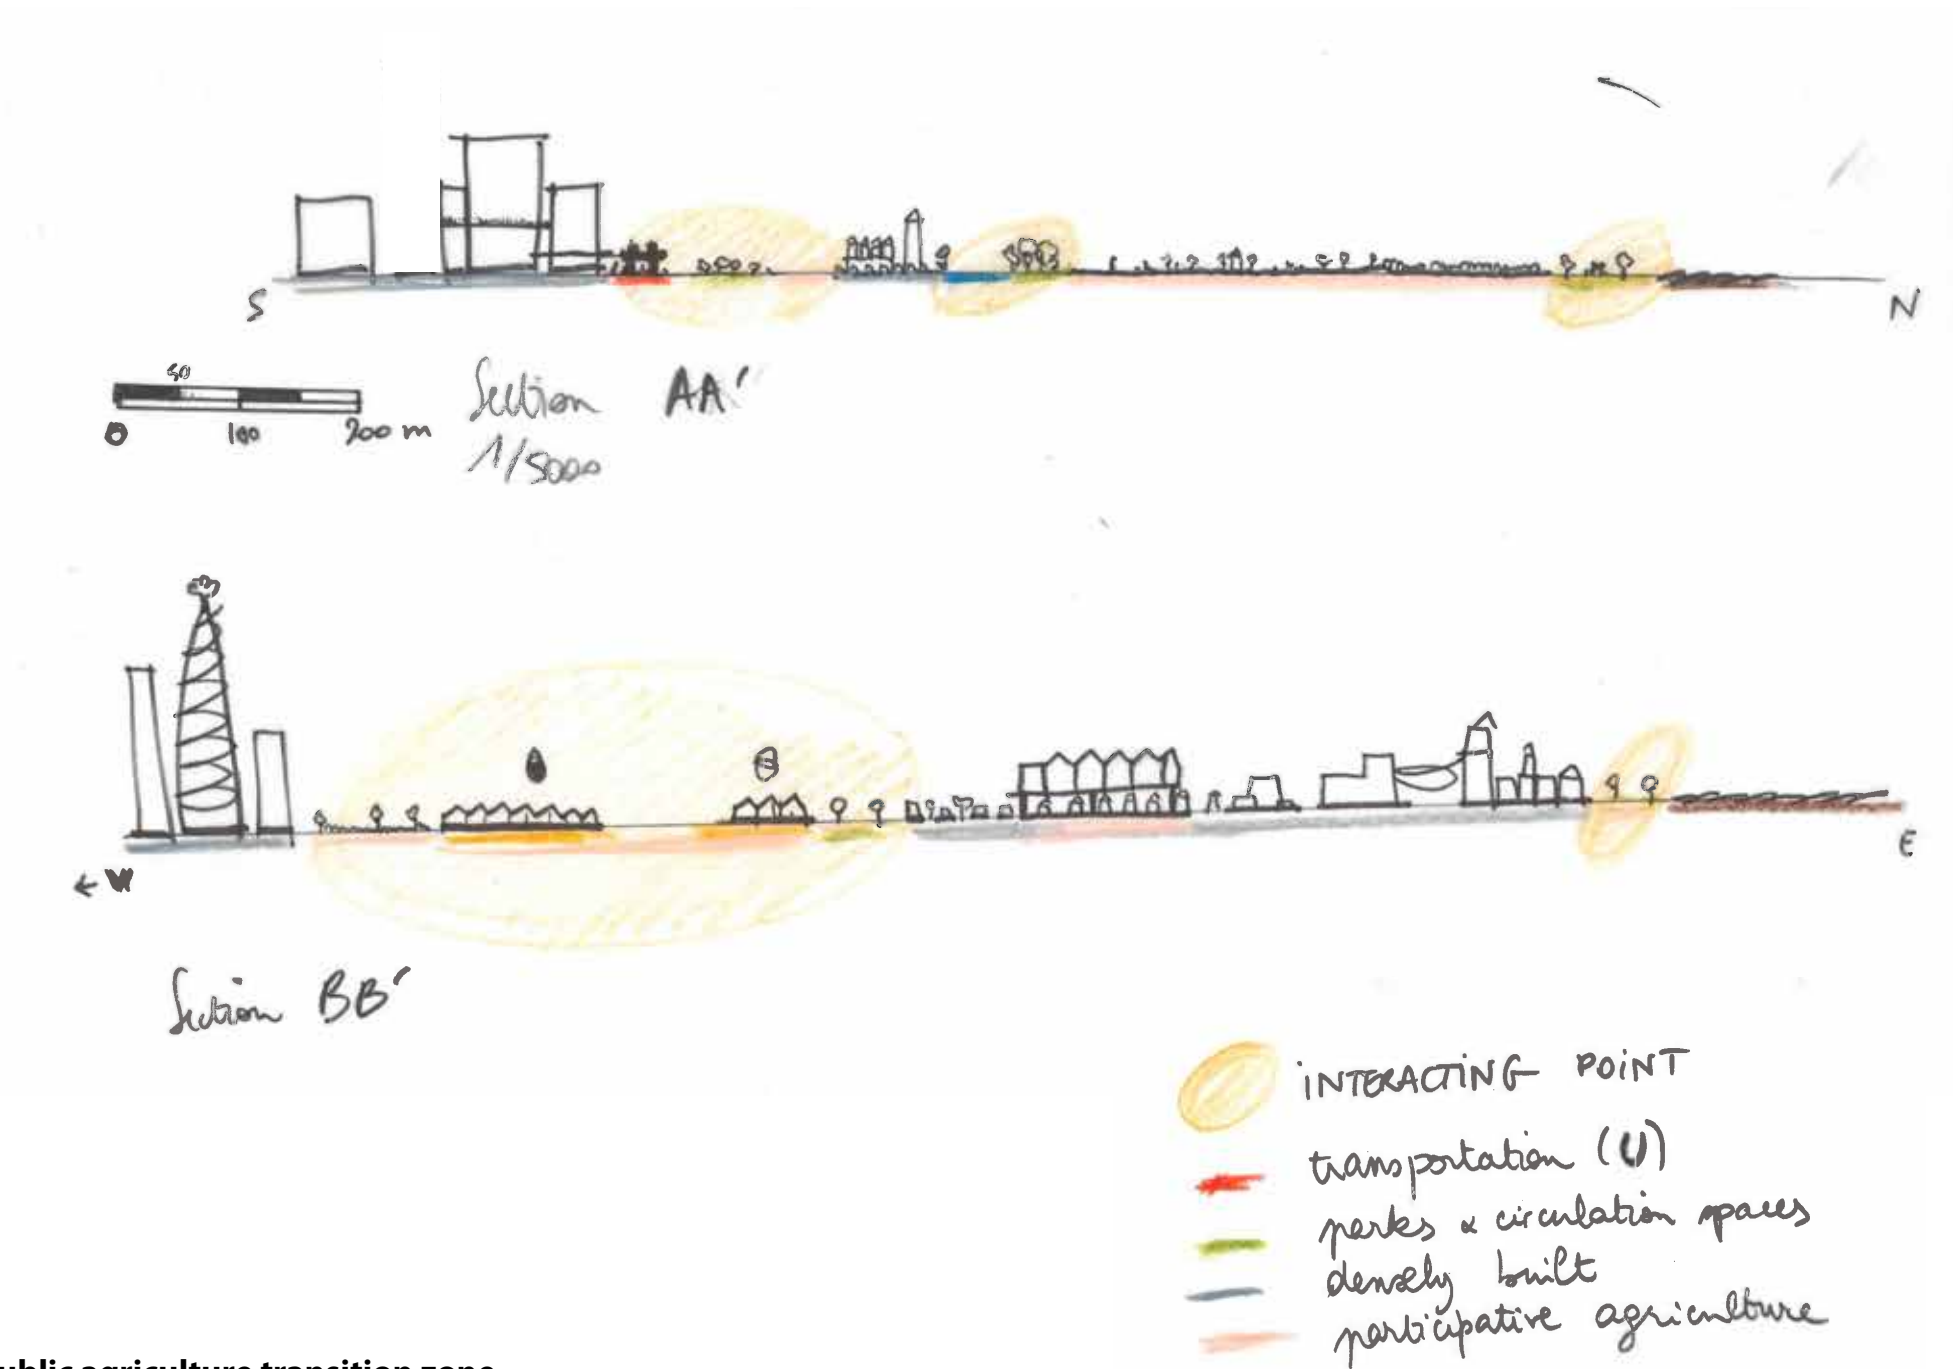 S
N
50
0 100 200 m
Section AA'
1/5000
← W
E
Section BB'
INTERACTING POINT
transportation (U)
parks & circulation spaces
densely built
participative agriculture
ublic agriculture transition zone